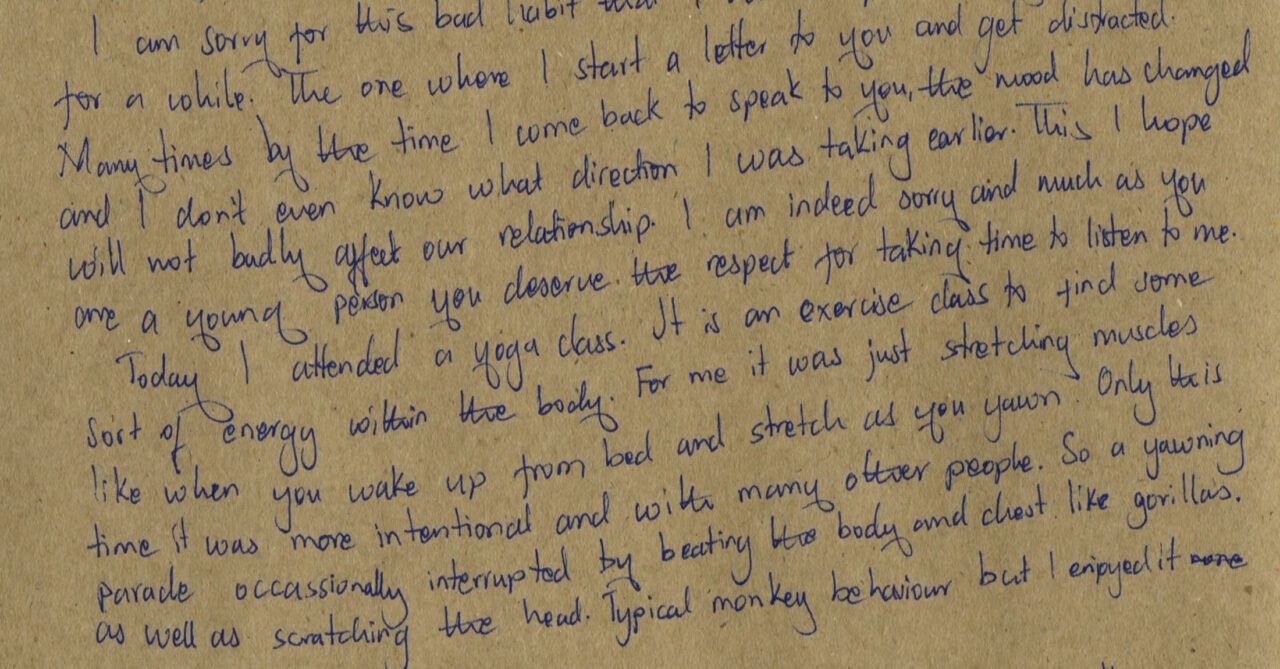 I am sorry for this bad habit that I
for a while. The one where I start a letter to you and get distracted.
Many times by the time I come back to speak to you, the mood has changed
and I don't even know what direction I was taking earlier. This I hope
will not badly affect our relationship. I am indeed sorry and much as you
are a young person you deserve the respect for taking time to listen to me.
Today I attended a yoga class. It is an exercise class to find some
sort of energy within the body. For me it was just stretching muscles
like when you wake up from bed and stretch as you yawn. Only this
time it was more intentional and with many other people. So a yawning
parade occassionally interrupted by beating the body and chest like gorillas.
as well as scratching the head. Typical monkey behaviour but I enjoyed it